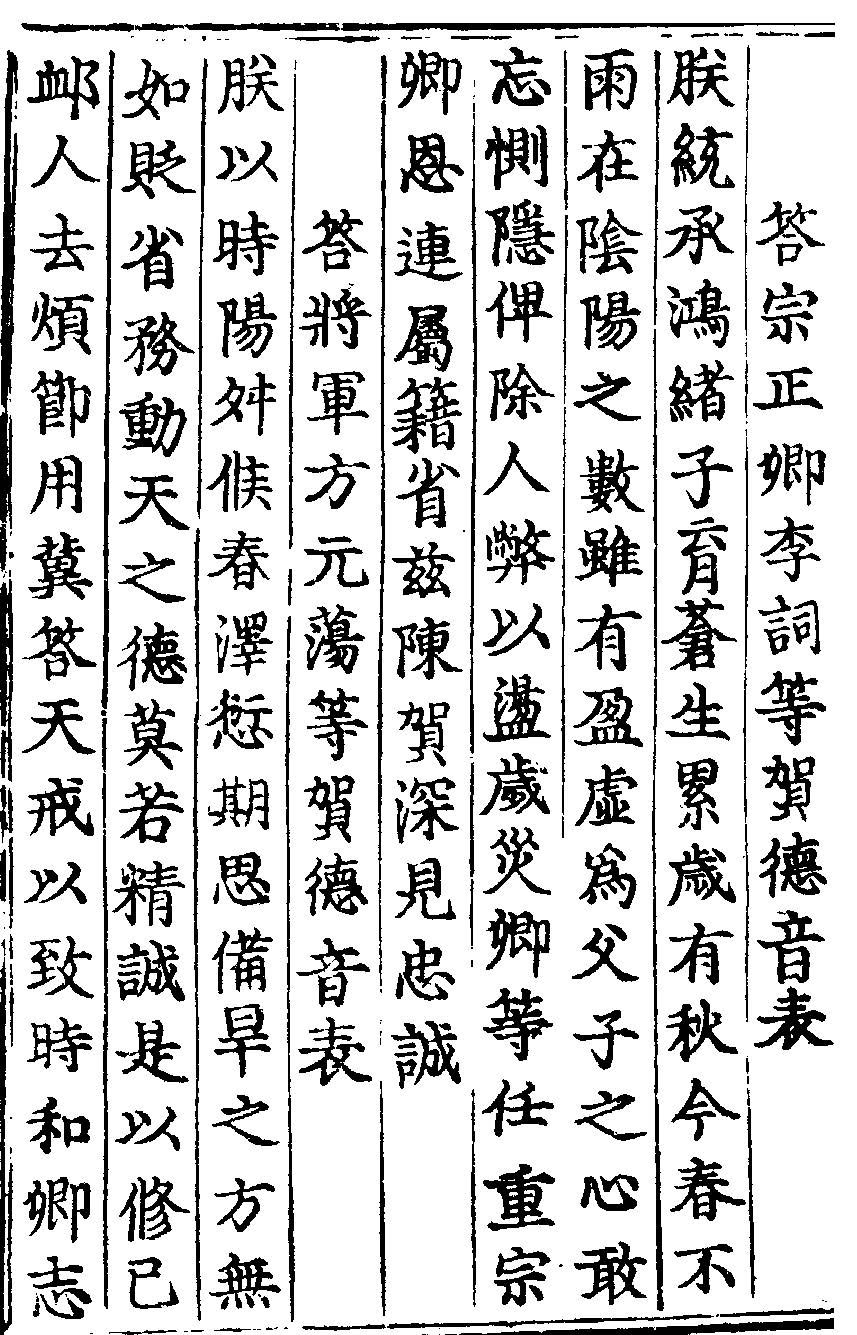 答宗正卿李詞等賀德音表
朕統承鴻緒子育蒼生累歲有秋今春不
雨在陰陽之數雖有盈虛爲父子之心敢
忘惻隱俾除人弊以盪歲災卿等任重宗
卿恩連屬籍省兹陳賀深見忠誠
答將軍方元蕩等賀德音表
朕以時陽舛候春澤愆期思備旱之方無
如貶省務動天之德莫若精誠是以修已
䘏人去煩節用冀答天戒以致時和卿志